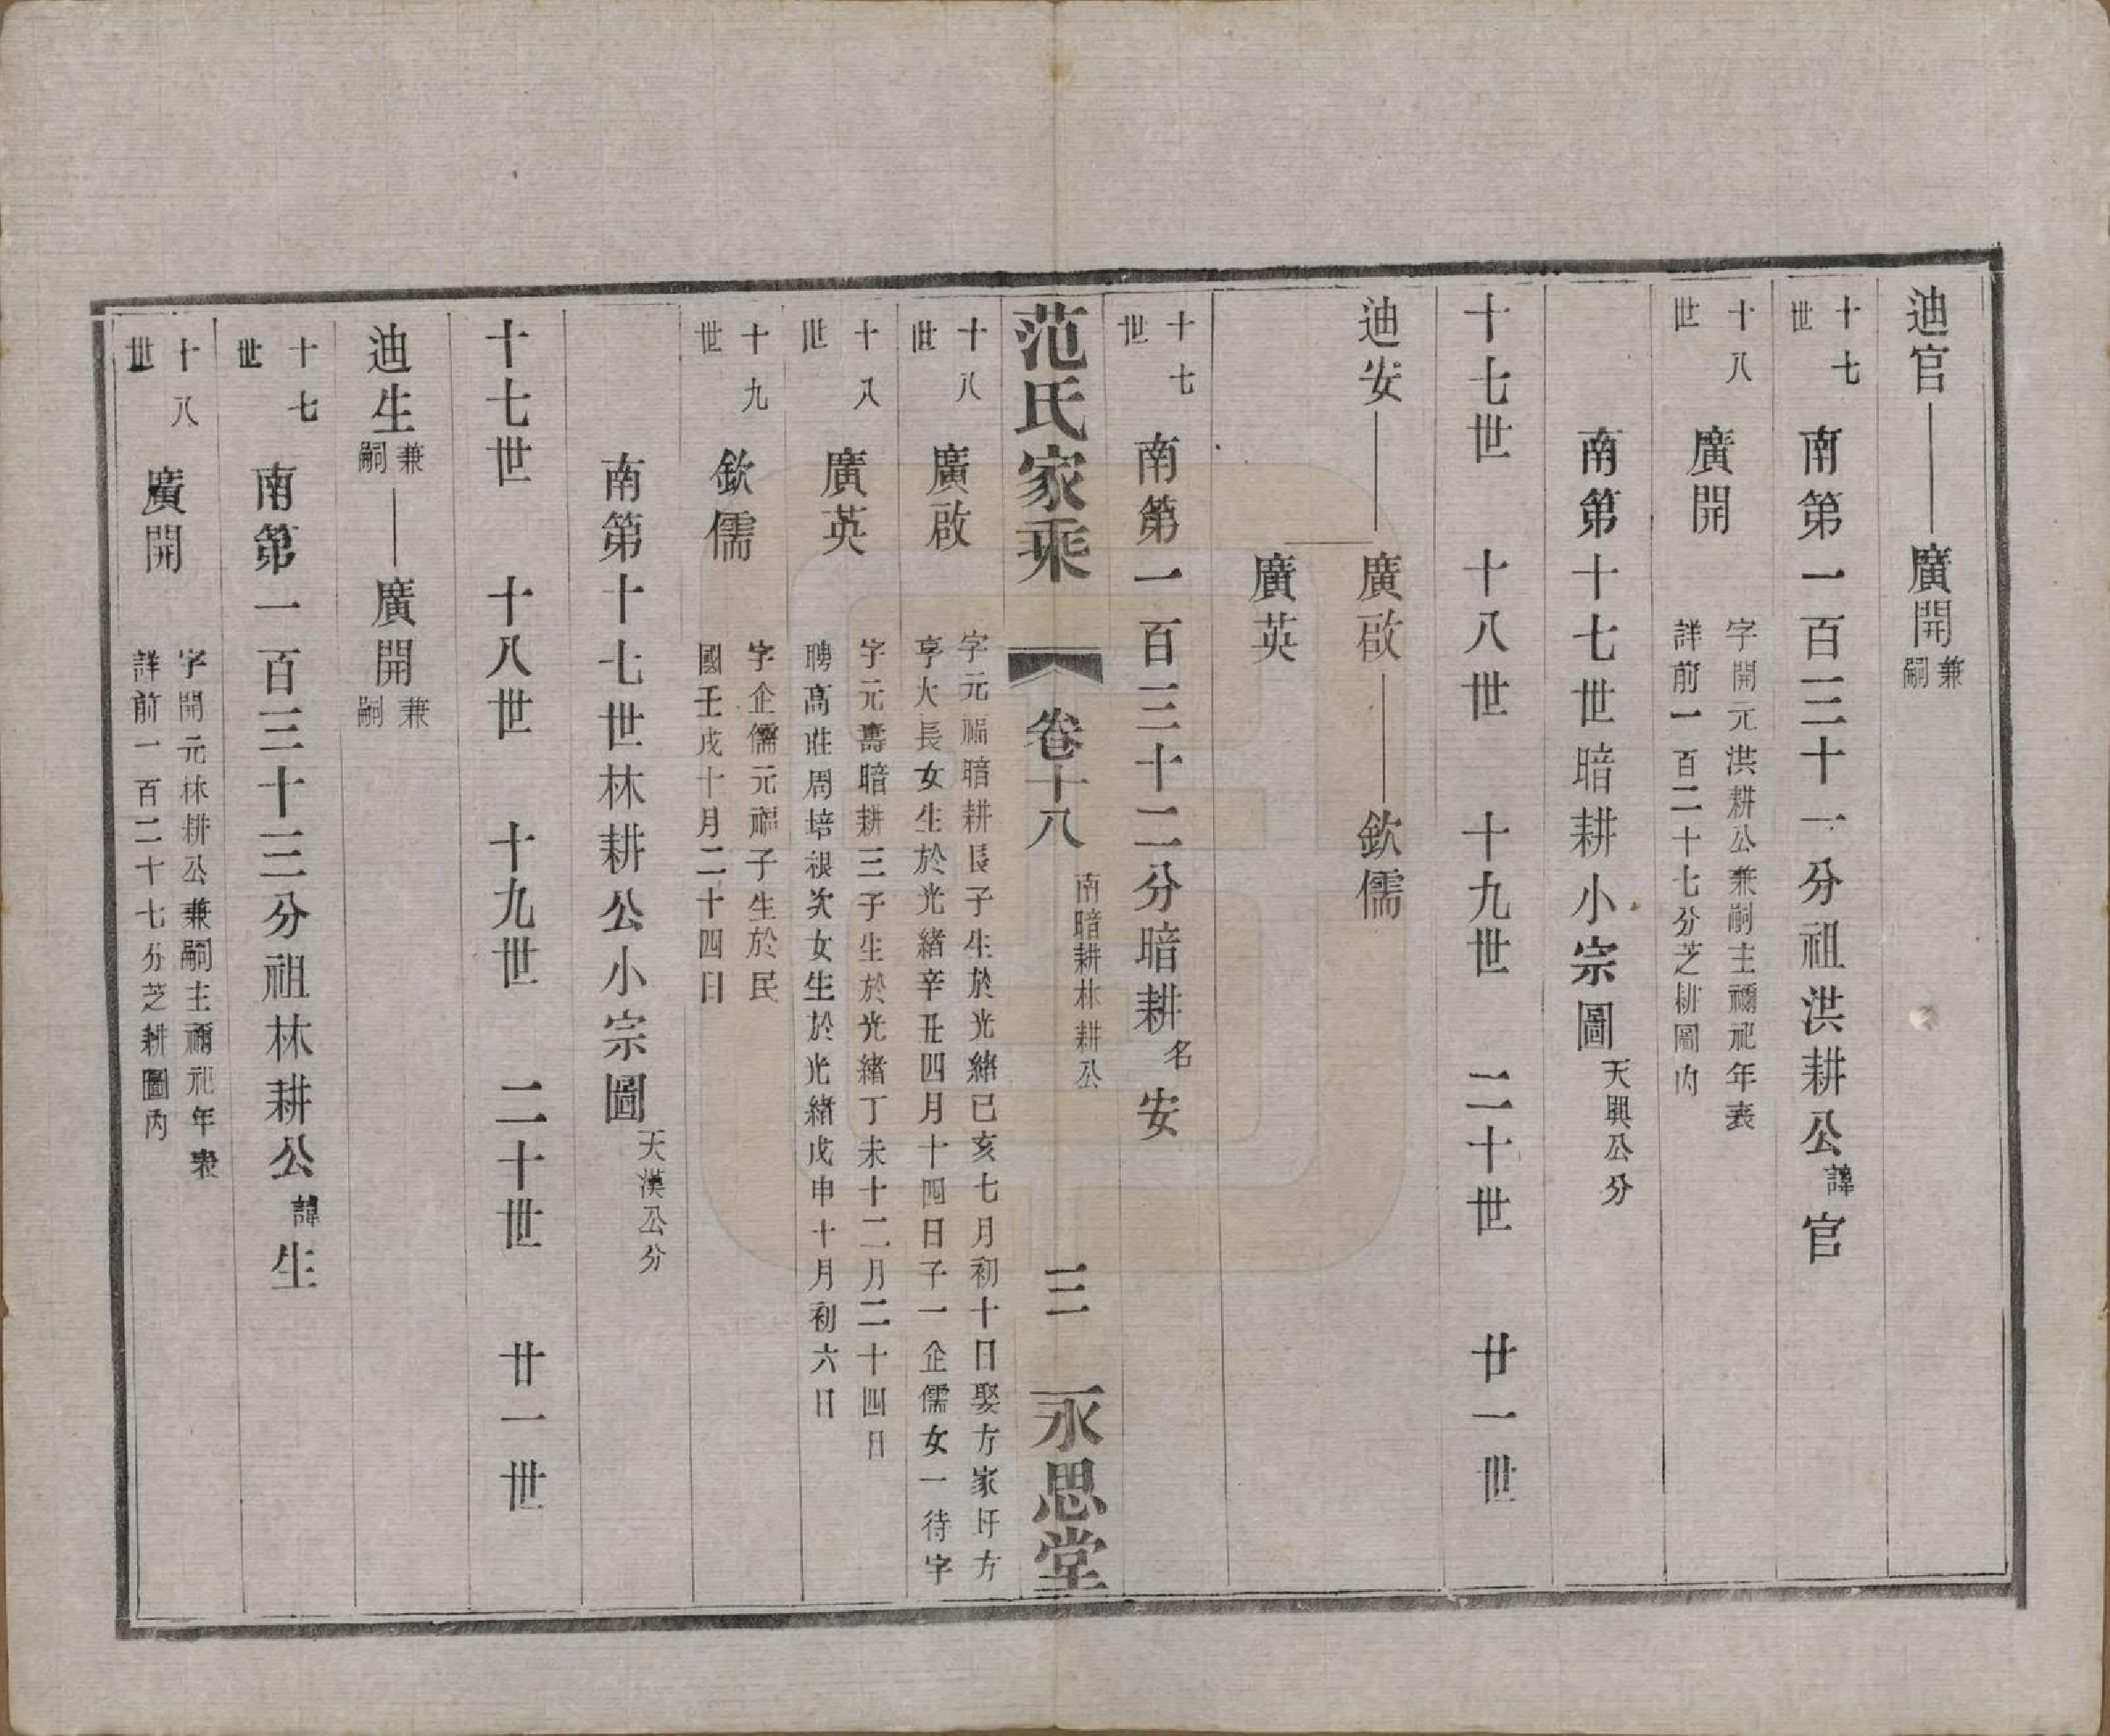 迪官 廣開兼嗣
十七世 南第一百三十一分祖洪耕公諱官
十八世 廣開 字開元洪耕公兼嗣主禰祀年表
詳前一百二十七分芝耕圖內
南第十七世暗耕小宗圖天興公分
十七世 十八世 十九世 二十世 廿一世
迪安 廣啟 欽儒
廣英
十七世 南第一百三十二分暗耕名安
范氏家乘 卷十八 南暗耕林耕公 三 永思堂
十八世 廣啟 字元福暗耕長子生於光緒己亥七月初十日娶方家圩方
亨大長女生於光緒辛丑四月十四日子一企儒女一待字
十八世 廣英 字元壽暗耕三子生於光緒丁未十二月二十四日
聘高莊周培根次女生於光緒戊申十月初六日
十九世 欽儒 字企儒元福子生於民
國壬戌十月二十四日
南第十七世林耕公小宗圖天漢公分
十七世 十八世 十九世 二十世 廿一世
迪生兼嗣 廣開兼嗣
十七世 南第一百三十三分祖林耕公諱生
十八世 廣開 字開元林耕公兼嗣主禰祀年表
詳前一百二十七分芝耕圖內